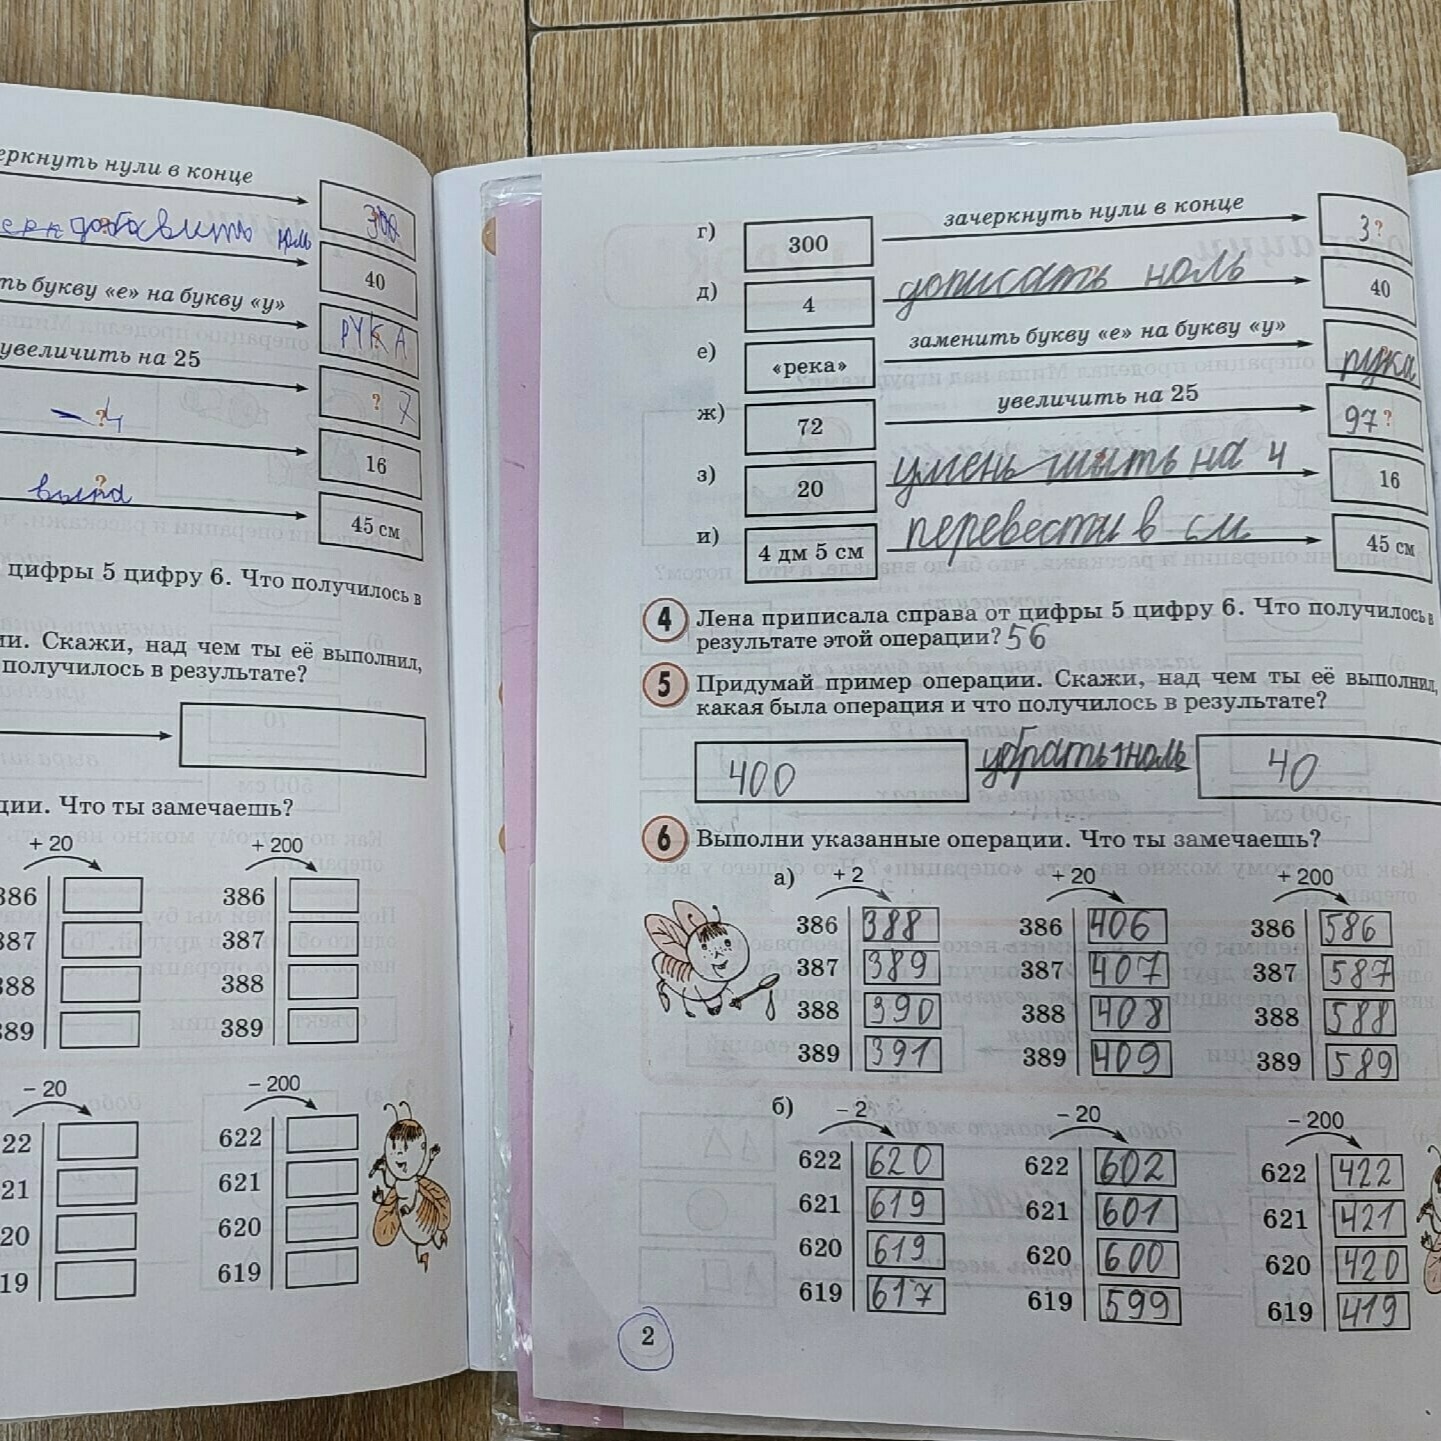 еркнуть нули в конце
300
добавить ноль
40
ть букву «е» на букву «у»
РУКА
увеличить на 25
? 7
– 4
?
16
?
45 см
цифры 5 цифру 6. Что получилось в
ии. Скажи, над чем ты её выполнил,
получилось в результате?
ции. Что ты замечаешь?
+ 20 + 200
386 386
387 387
388 388
389 389
– 20 – 200
22 622
21 621
20 620
19 619
г) 300 зачеркнуть нули в конце 3 ?
д) 4 дописать ноль 40
е) «река» заменить букву «е» на букву «у» рука
ж) 72 увеличить на 25 97 ?
з) 20 уменьшить на 4 16
и) 4 дм 5 см перевести в см 45 см
4 Лена приписала справа от цифры 5 цифру 6. Что получилось в
результате этой операции? 56
5 Придумай пример операции. Скажи, над чем ты её выполнил,
какая была операция и что получилось в результате?
400 убрать 1 ноль 40
6 Выполни указанные операции. Что ты замечаешь?
а) + 2 + 20 + 200
386 388 386 406 386 586
387 389 387 407 387 587
388 390 388 408 388 588
389 391 389 409 389 589
б) – 2 – 20 – 200
622 620 622 602 622 422
621 619 621 601 621 421
620 619 620 600 620 420
619 617 619 599 619 419
2